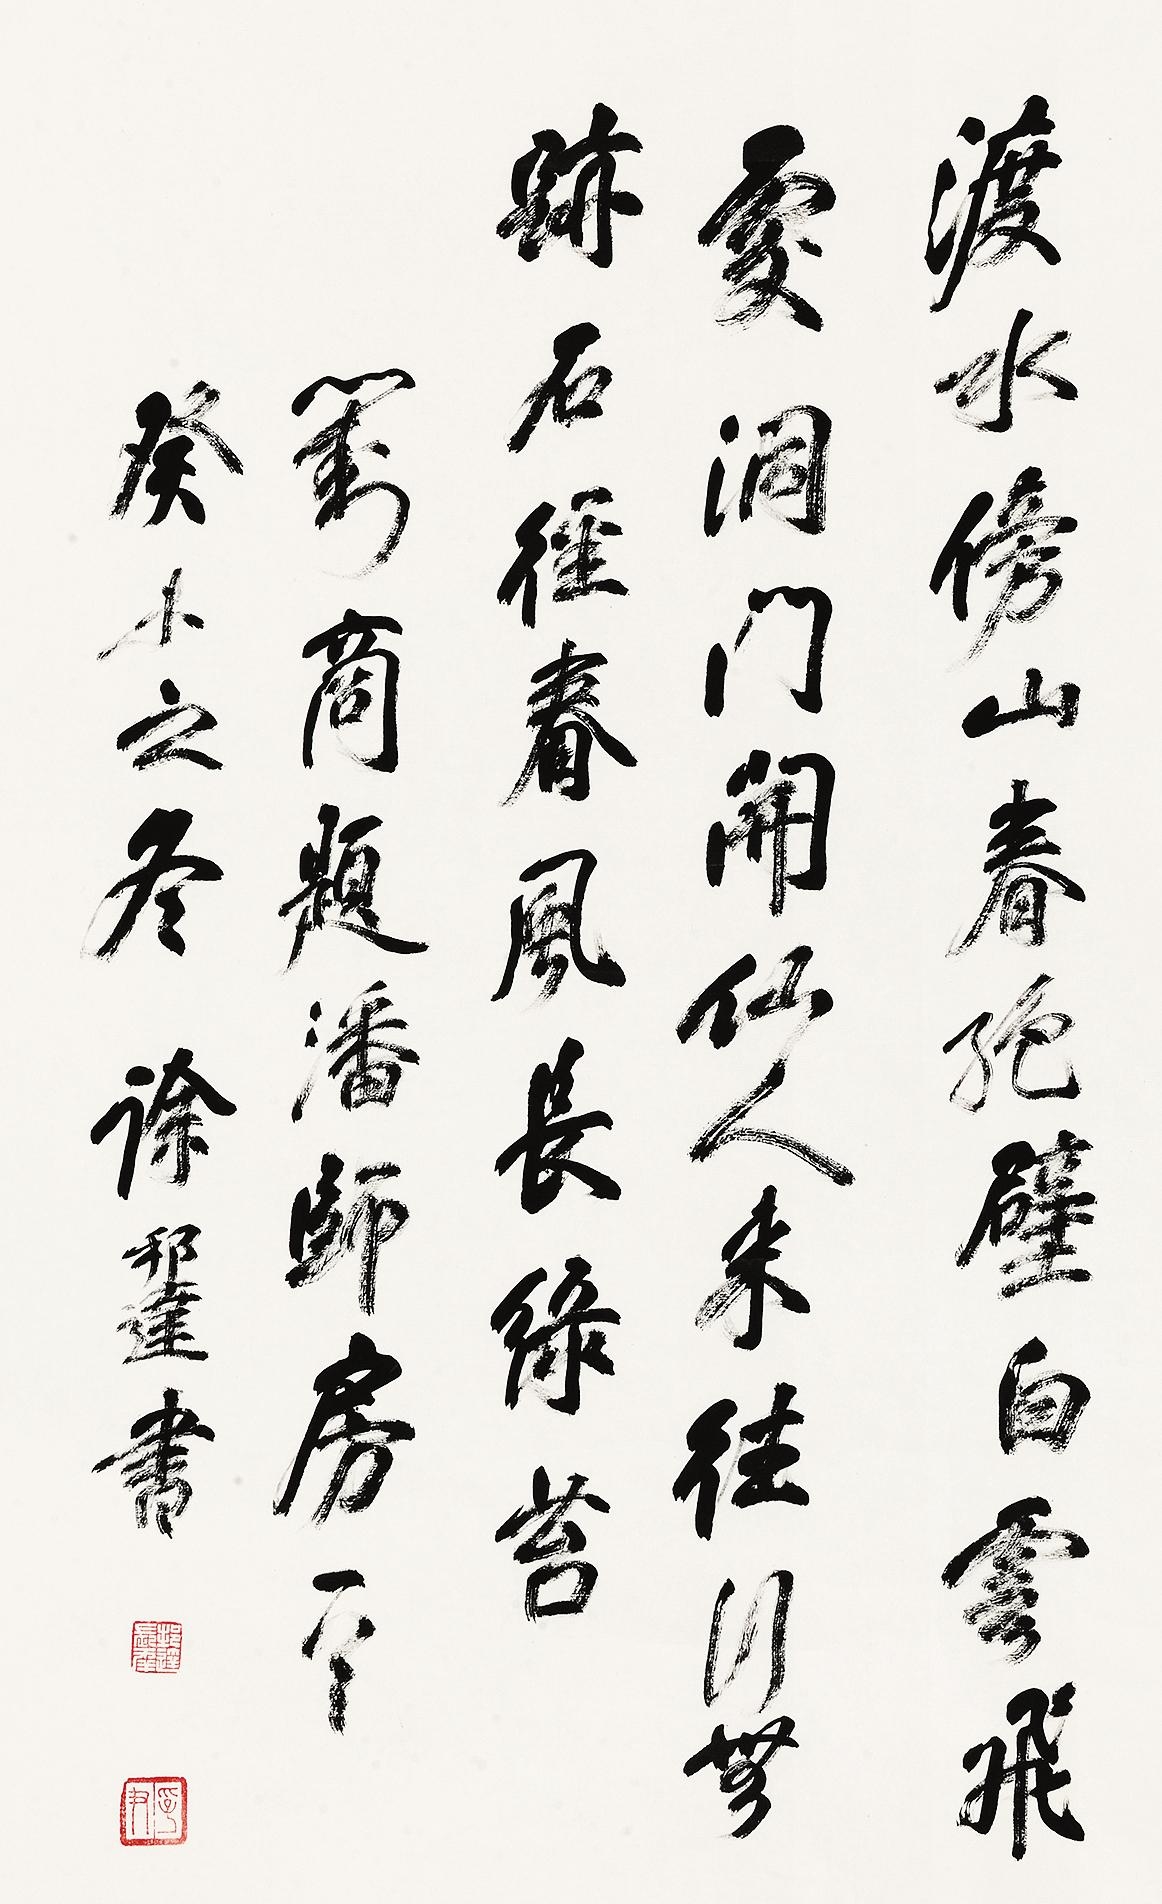 渡水傍山春絕壁白雲飛
處洞門開仙人来往行無
跡石徑春風長綠苔
劉商題潘師房
癸之冬 徐邦達書
孚尹